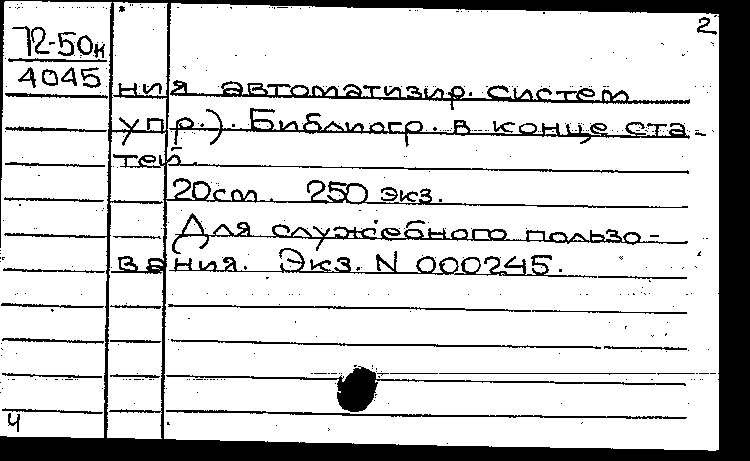 2
72-50н
4045
ния автоматизир. систем
упр.). Библиогр. в конце ста-
тей.
20см. 250 экз.
Для служебного пользо-
вания. Экз. N 000245.
ч